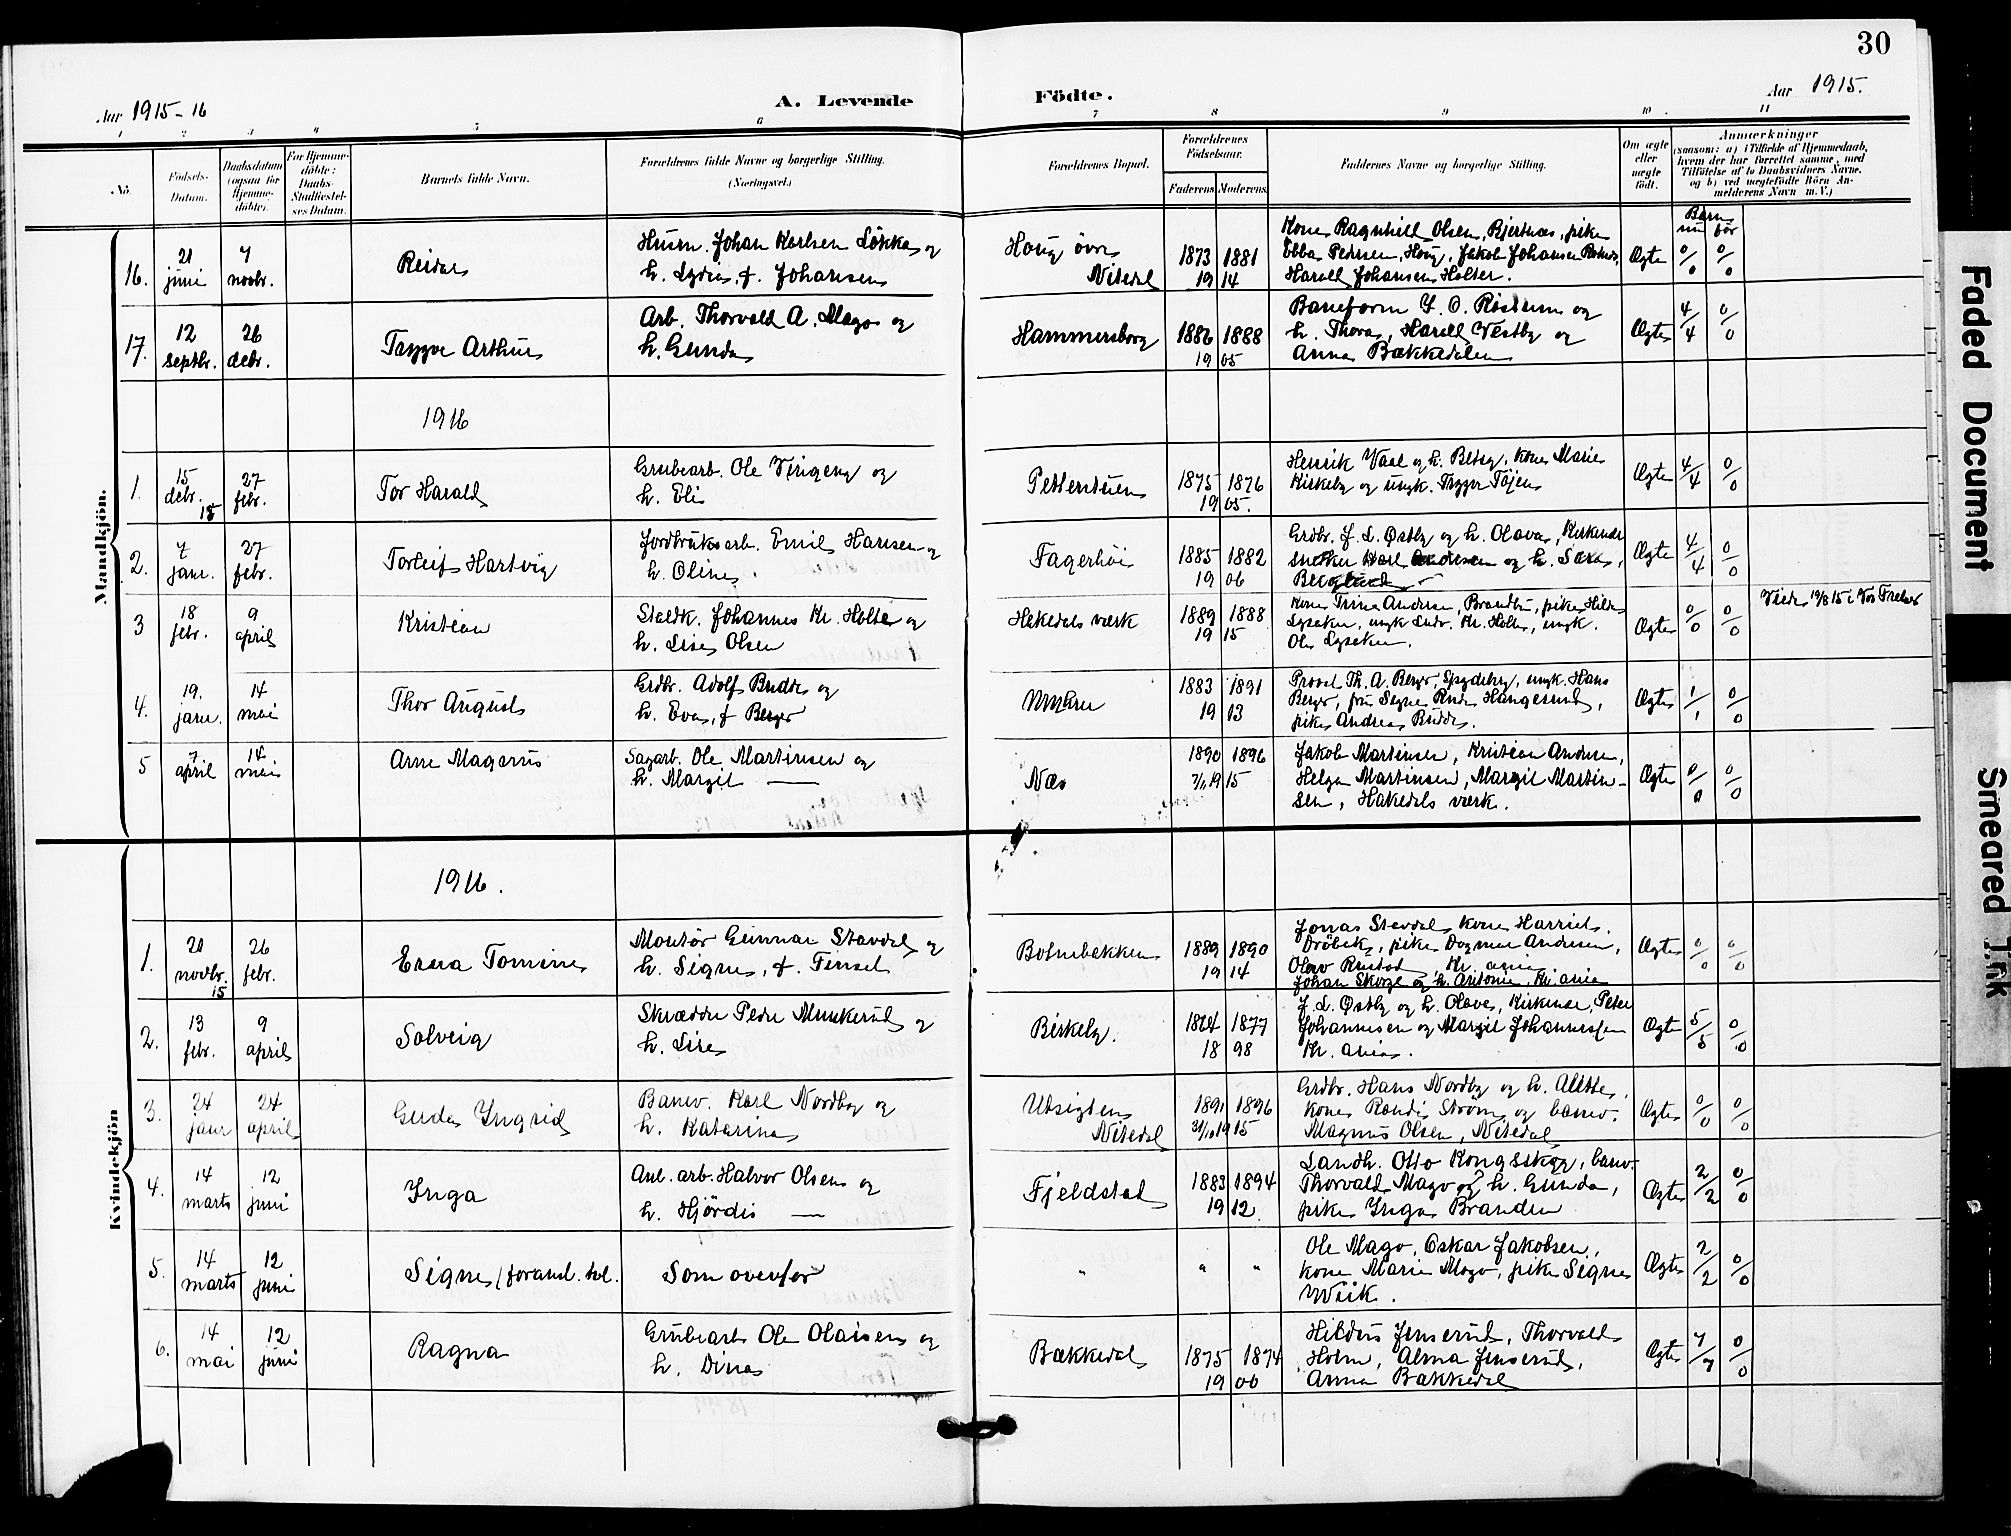 30
Aar 1915-16
A. Levende
Födte.
Aar 1915.
1 2 3 4 5 6 7 8 9 10 11
No.
Födsels-
Datum.
Daabsdatum
(ogsaa for
Hjemme-
döbte).
For Hjemme-
döbte:
Daabs-
Stadfæstel-
ses Datum.
Barnets fulde Navn.
Forældrenes fulde Navne og borgerlige Stilling.
(Næringsvei.)
Forældrenes Bopæl.
Forældrenes
Födselsaar.
Faderens Moderens
Faddernes Navne og borgerlige Stilling.
Om ægte
eller
uægte
født.
Anmærkninger
(saasom: a) i Tilfælde af Hjemmedaab,
hvem der har forrettet samme, med
Tilföielse af to Daabsvidners Navne,
og b) ved uægtefödte Börn An-
melderens Navn m. V.)
Mandkjön.
Børn
nu før
16.
21
juni
7
novbr.
Reidar
Husm. Johan Karlsen Løkka og
h. Lydia, f. Johansen
Houg øvre
Nitedal
1873 1881
19 14
Kone Ragnhild Olsen, Bjertnæs, pike
Ebba Pedersen, Houg, Jakob Johansen
Harald Johansen Holter.
Ægte
0/0 0/0
17.
12
septbr.
26
debr.
Trygve Arthur
Arb. Thorvald A. Mago og
h. Gunda
Hammersborg
1886 1888
19 05
Baneform. og
h. Thora, Harald Vestby og
Anna Bækkedalen
Ægte
4/4 0/0
1916
1.
15
debr.
15
27
febr.
Tor Harald
Grubearb. Ole og
h. Eli
Pettersteien
1875 1876
19 05.
Henrik Vaal og h. Betsy, kone Marie
Kirkeby og ungk. Trygve Töjen
Ægte
4/4 0/0
2.
7
janr.
27
febr.
Torleif Hartvig
Jordbruksarb. Emil Hansen og
h. Oline
Fagerhöi
1885 1882
19 06
Grdbr. J. L. Østby og h. Olava, Kirkenær
snekker Karl Andresen og h. Sara,
Berglund
Ægte
4/4 0/0
3
18
febr.
9
april
Kristian
Staldk. Johannes Kr. Holter og
h. Lise Olsen
Hakedals værk
1889 1888
19 15
Kone Trina Andersen, Brandbu, pike Hilda
Lysaker, ungk. Ludv. Kr. Holter, ungk.
Ole Lysaker.
Ægte
0/0 0/0
Viede 12/8 15 i Vor Frelser
4.
19.
janr.
14
mai
Thor August
Grdbr. Adolf Budde og
h. Eva, f. Berger
Mykru
1883 1891
19 13
Provst Th. A. Berger, Spydeberg, ungk. Hans
Berger, fru Signe Hangerund,
pike Andrea Budde.
Ægte
1/1 0/0
5
7
april
14
mai
Arne Magnus
Sagarb. Ole Martinsen og
h. Margit —
Næs
1890 1896
7/11 19 15
Jakob Martinsen, Kristian Andersen,
Helga Martinsen, Margit Martin-
sen, Hakedals værk.
Ægte
0/0 0/0
Kvindekjön
1916.
1.
20
novbr.
15
26
febr.
Erna Tomine
Montör Gunnar Stavdal og
h. Signe, f. Finsal
Botnebakken
1889 1890
19 14
Jonas Stevdal, kone Harriet,
Dröbak, pike Dagmar Andersen,
Olav Rustad, Kr.ania
Johan Skorge og h. Antonie, Kr.ania
Ægte
0/0 0/0
2.
13
febr.
9
april
Solveig
Skrædder Peder Munkerud og
h. Lise
Birkely.
1874 1877
18 98
J. L. Østby og h. Olava, Kirkenær, Peter
Johannesen og Margit Johannesen
Kr.ania.
Ægte
5/5 0/0
3.
24
janr
24
april
Gerda Yngrid
Banev. Karl Nordby og
h. Katarina
Utsigten
Nitedal
1891 1896
31/10 19 15
Grdbr. Hans Nordby og h. Alette,
kone Randi Ström og banev.
Magnus Olsen, Nitedal
Ægte
0/0 0/0
4.
14
marts
12
juni
Ynga
Anl. arb. Halvor Olsen og
h. Hjördis —
Fjeldstad
1883 1894
19 12.
Landh. Otto Kongsskog, banev.
Thorvald Mago og h. Gunda,
pike Ynga Branden
Ægte
2/2 0/0
5.
14
marts
12
juni
Signe (forand. tvl.
Som ovenfor
" " "
Ole Mago, Oskar Jakobsen,
kone Marie Mago, pike Signe
Wiik.
Ægte
2/2 0/0
6.
14
mai
12
juni
Ragna
Grubearb Ole Olaisen og
h. Dina
Bækkedal
1875 1874
19 00
Hildur Jenserud, Thorvald
Holm, Alma Jenserud,
Anna Bækkedal
Ægte
7/7 0/0
Faded Document
Smeared Ink